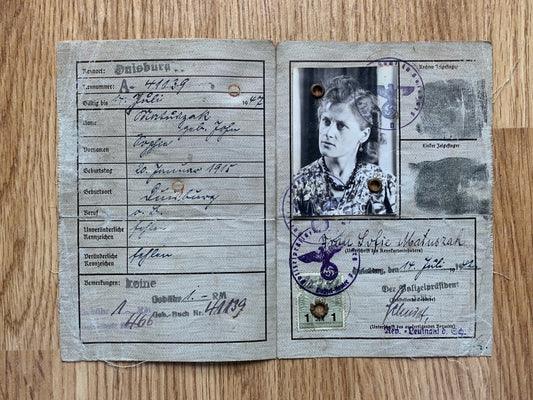 Kennort: Duisburg
Kennummer: A- 41039
Gültig bis 14. Juli 1947
Name Matuszak
geb. John
Vornamen Sophie
Geburtstag 20. Januar 1915
Geburtsort Duisburg
Beruf o. B.
Unveränderliche Kennzeichen fehlen
Veränderliche Kennzeichen fehlen
Bemerkungen: Keine
Gebühr 1.- RM
Geb.-Buch Nr. 41039
Rechter Zeigefinger
Linker Zeigefinger
Frau Sofie Matuszak
(Unterschrift des Kennkarteninhabers)
Duisburg, den 14. Juli 1942
Der Polizeipräsident
(Ausstellende Behörde)
1 1
(Unterschrift des ausfertigenden Beamten)
Rev.-Leutnant d. Sch.